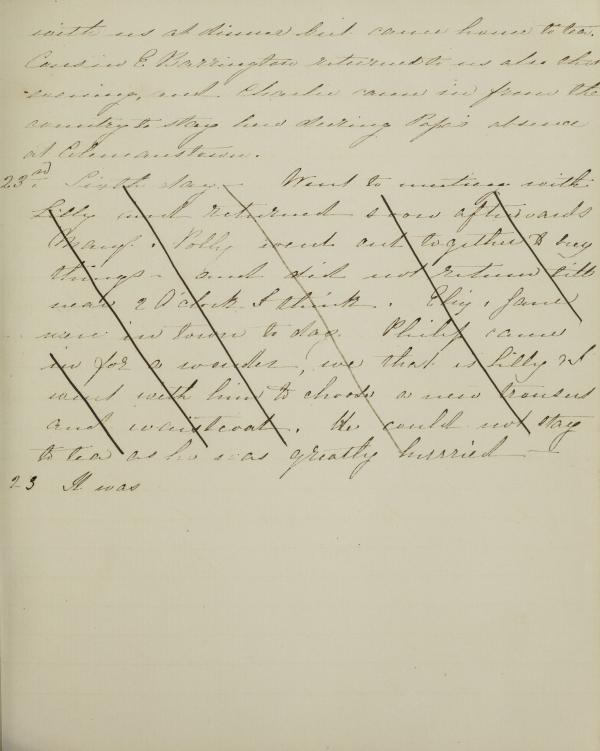 with us at dinner but came home to tea.
Cousin E. Barrington returned to us also this
evening, and Charlie came in from the
country to stay here during Papa's absence
at Colemanstown.
23rd. Sixth day. Went to meeting with
Lilly and returned soon afterwards
Mary & Polly went out together to buy
things - and did not return till
near 2 O'clock I think. Eliz & Jane
were in town to day. Philip came
in for a wonder, we that is Lilly & I
went with him to choose a new trousers
and waistcoat. He could not stay
to tea as he was greatly hurried —
23 It was